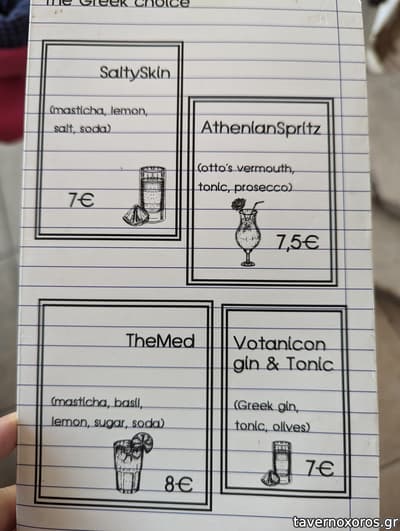 The Greek choice
SaltySkin
(masticha, lemon,
salt, soda)
7€
AthenianSpritz
(otto's vermouth,
tonic, prosecco)
7,5€
TheMed
(masticha, basil,
lemon, sugar, soda)
8€
Votanicon
gin & Tonic
(Greek gin,
tonic, olives)
7€
tavernoxoros.gr